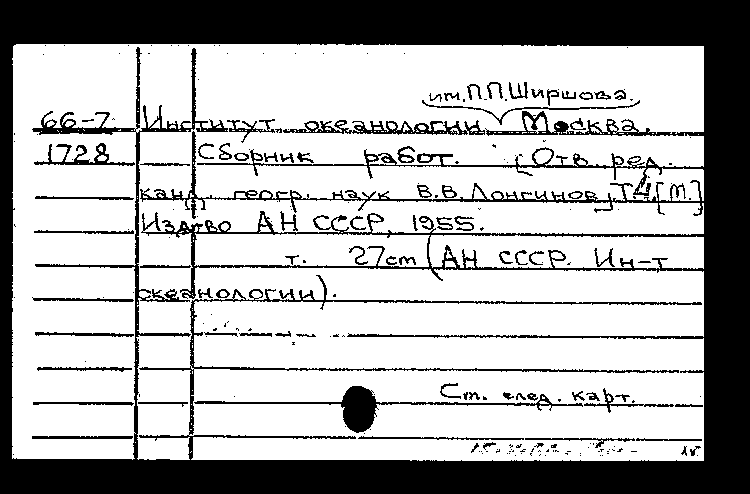 им. П.П. Ширшова.
66-7 Институт океанологии Москва.
1728 Сборник работ. [Отв. ред.
канд. геогр. наук В.В. Лонгинов] Т4 [М.]
Изд-во АН СССР, 1955.
т. 27cm (АН СССР. Ин-т
океанологии).
См. след. карт.